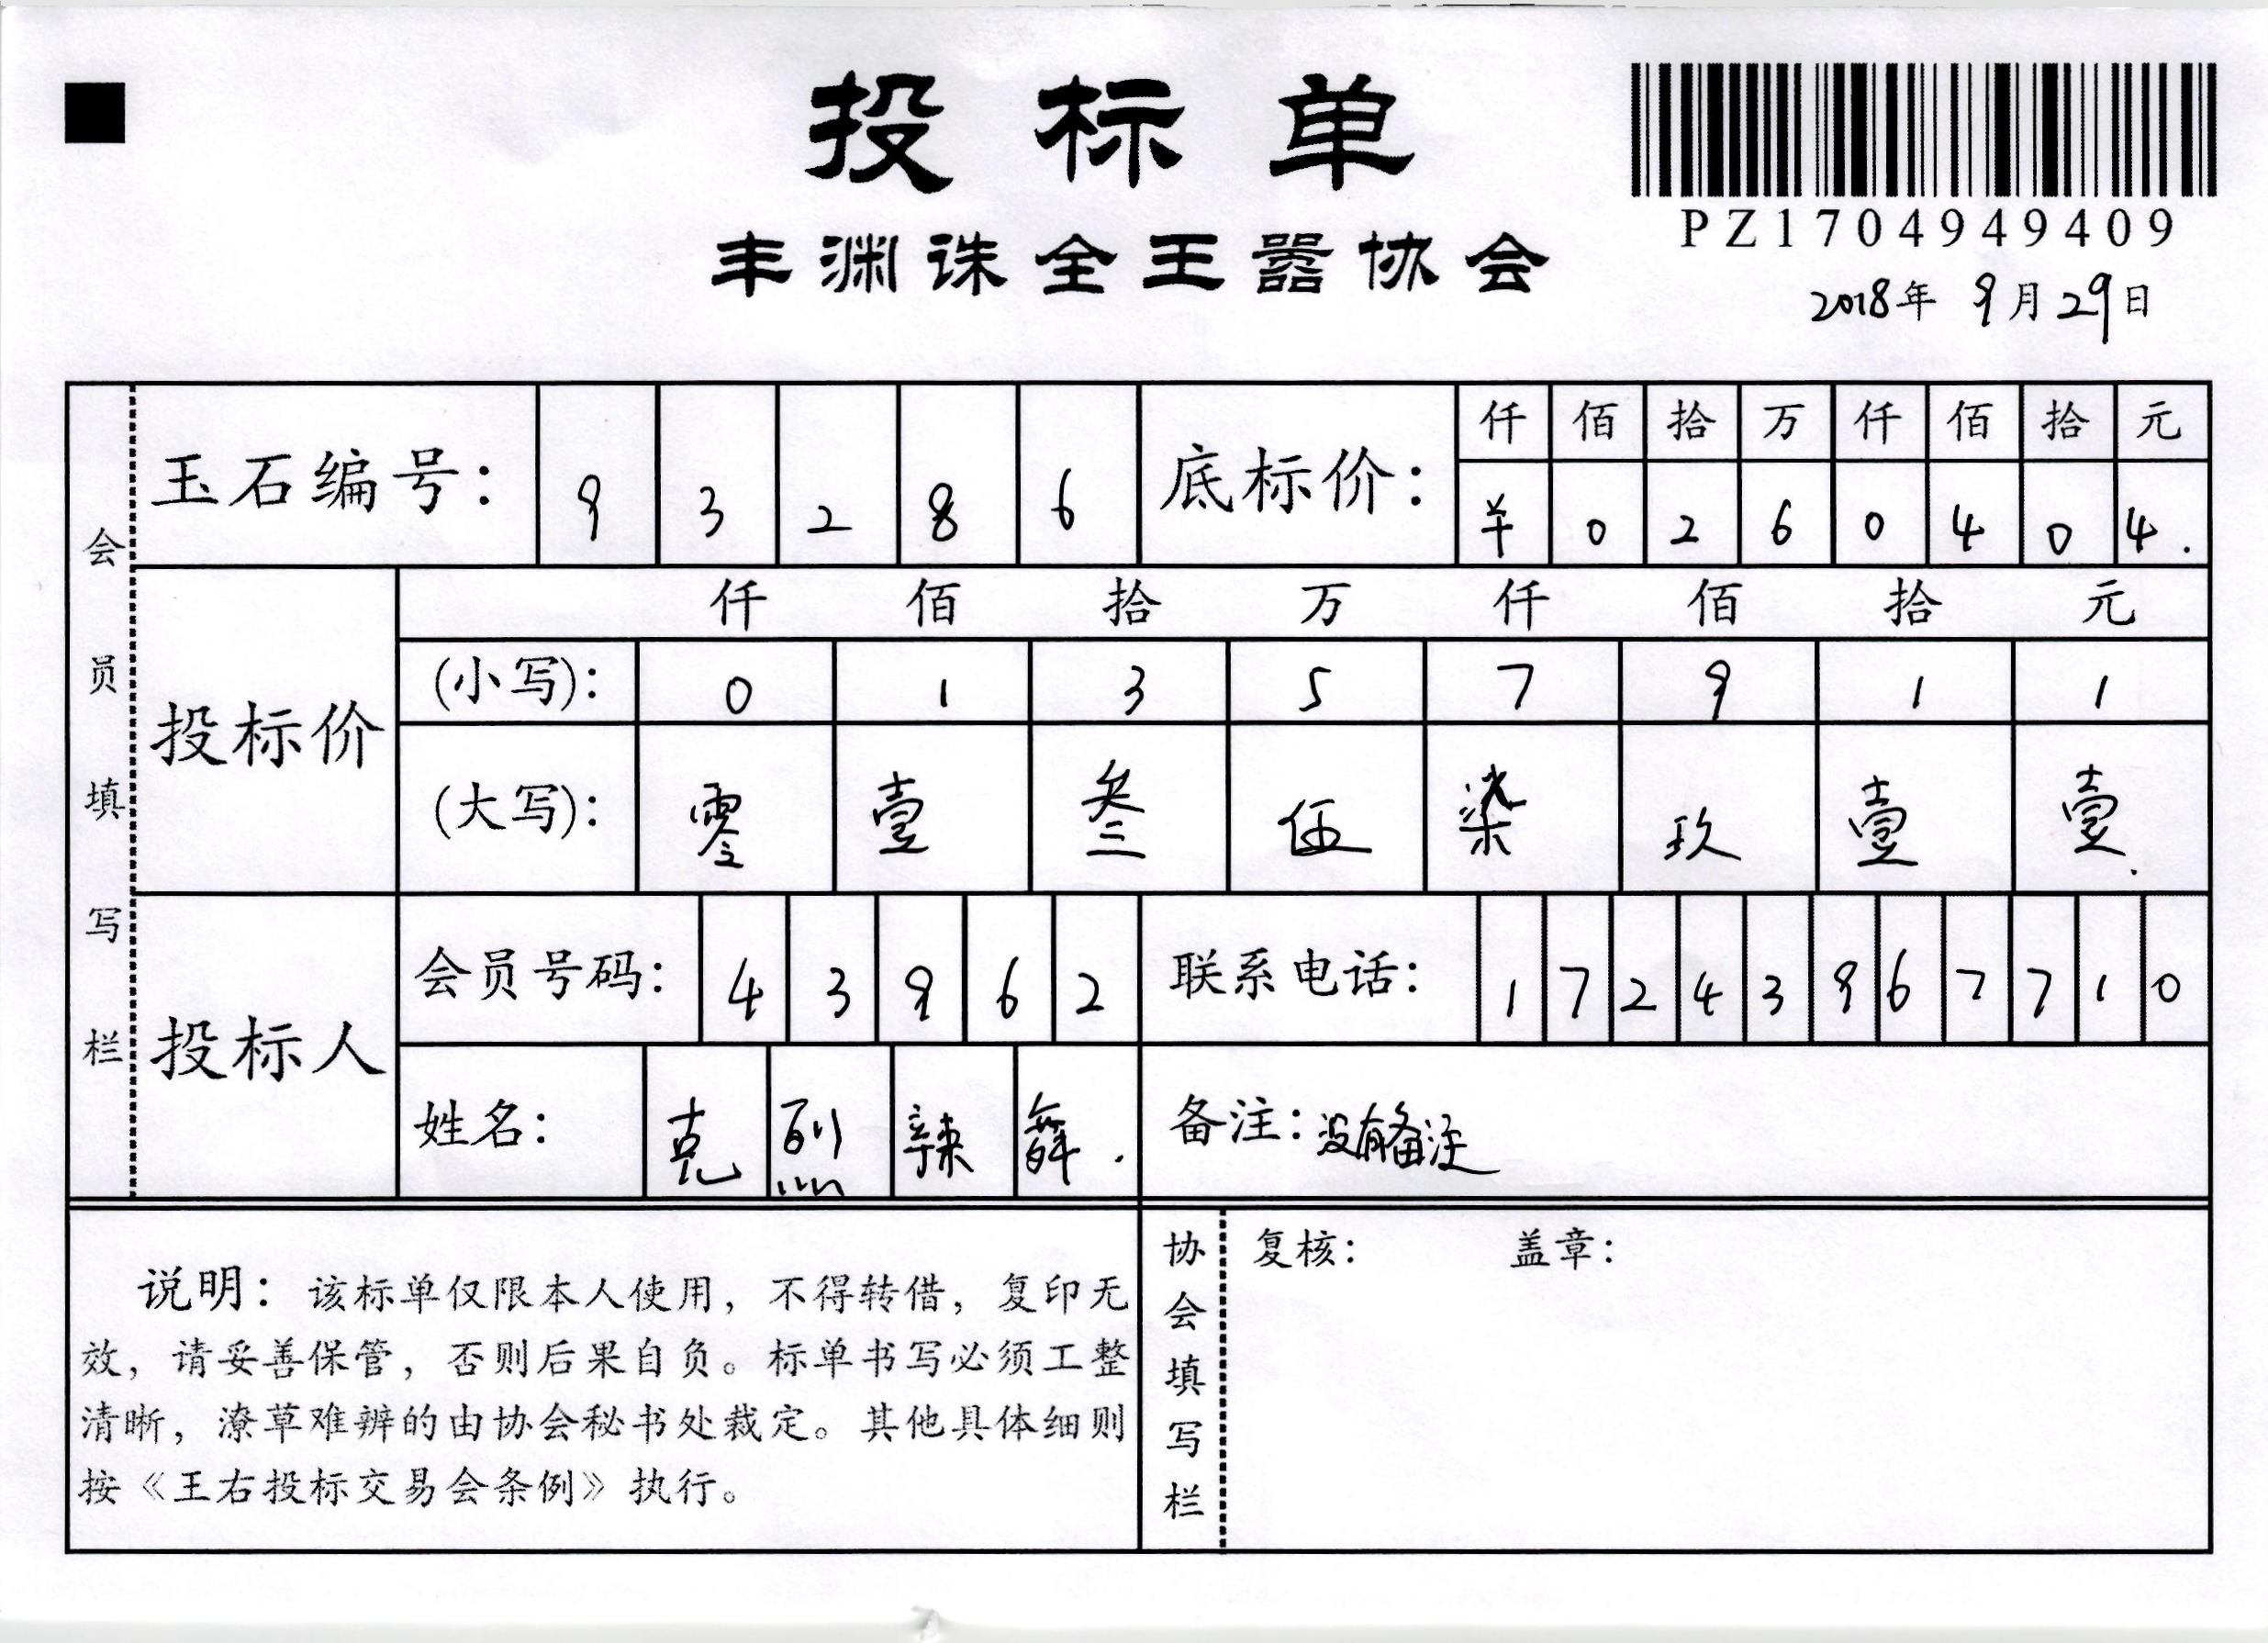 投标单
丰渊诛全王嚣协会
PZ1704949409
2018年 9月29日
会员填写栏
玉石编号: 9 3 2 8 6
底标价: 仟 佰 拾 万 仟 佰 拾 元
¥ 0 2 6 0 4 0 4.
投标价
仟 佰 拾 万 仟 佰 拾 元
(小写): 0 1 3 5 7 9 1 1
(大写): 零 壹 叁 伍 柒 玖 壹 壹.
投标人
会员号码: 4 3 9 6 2
联系电话: 1 7 2 4 3 9 6 7 7 1 0
姓名: 克 烈 辣 舞.
备注: 没有备注
说明: 该标单仅限本人使用, 不得转借, 复印无
效, 请妥善保管, 否则后果自负。标单书写必须工整
清晰, 潦草难辨的由协会秘书处裁定。其他具体细则
按《王右投标交易会条例》执行。
协会填写栏
复核: 盖章: